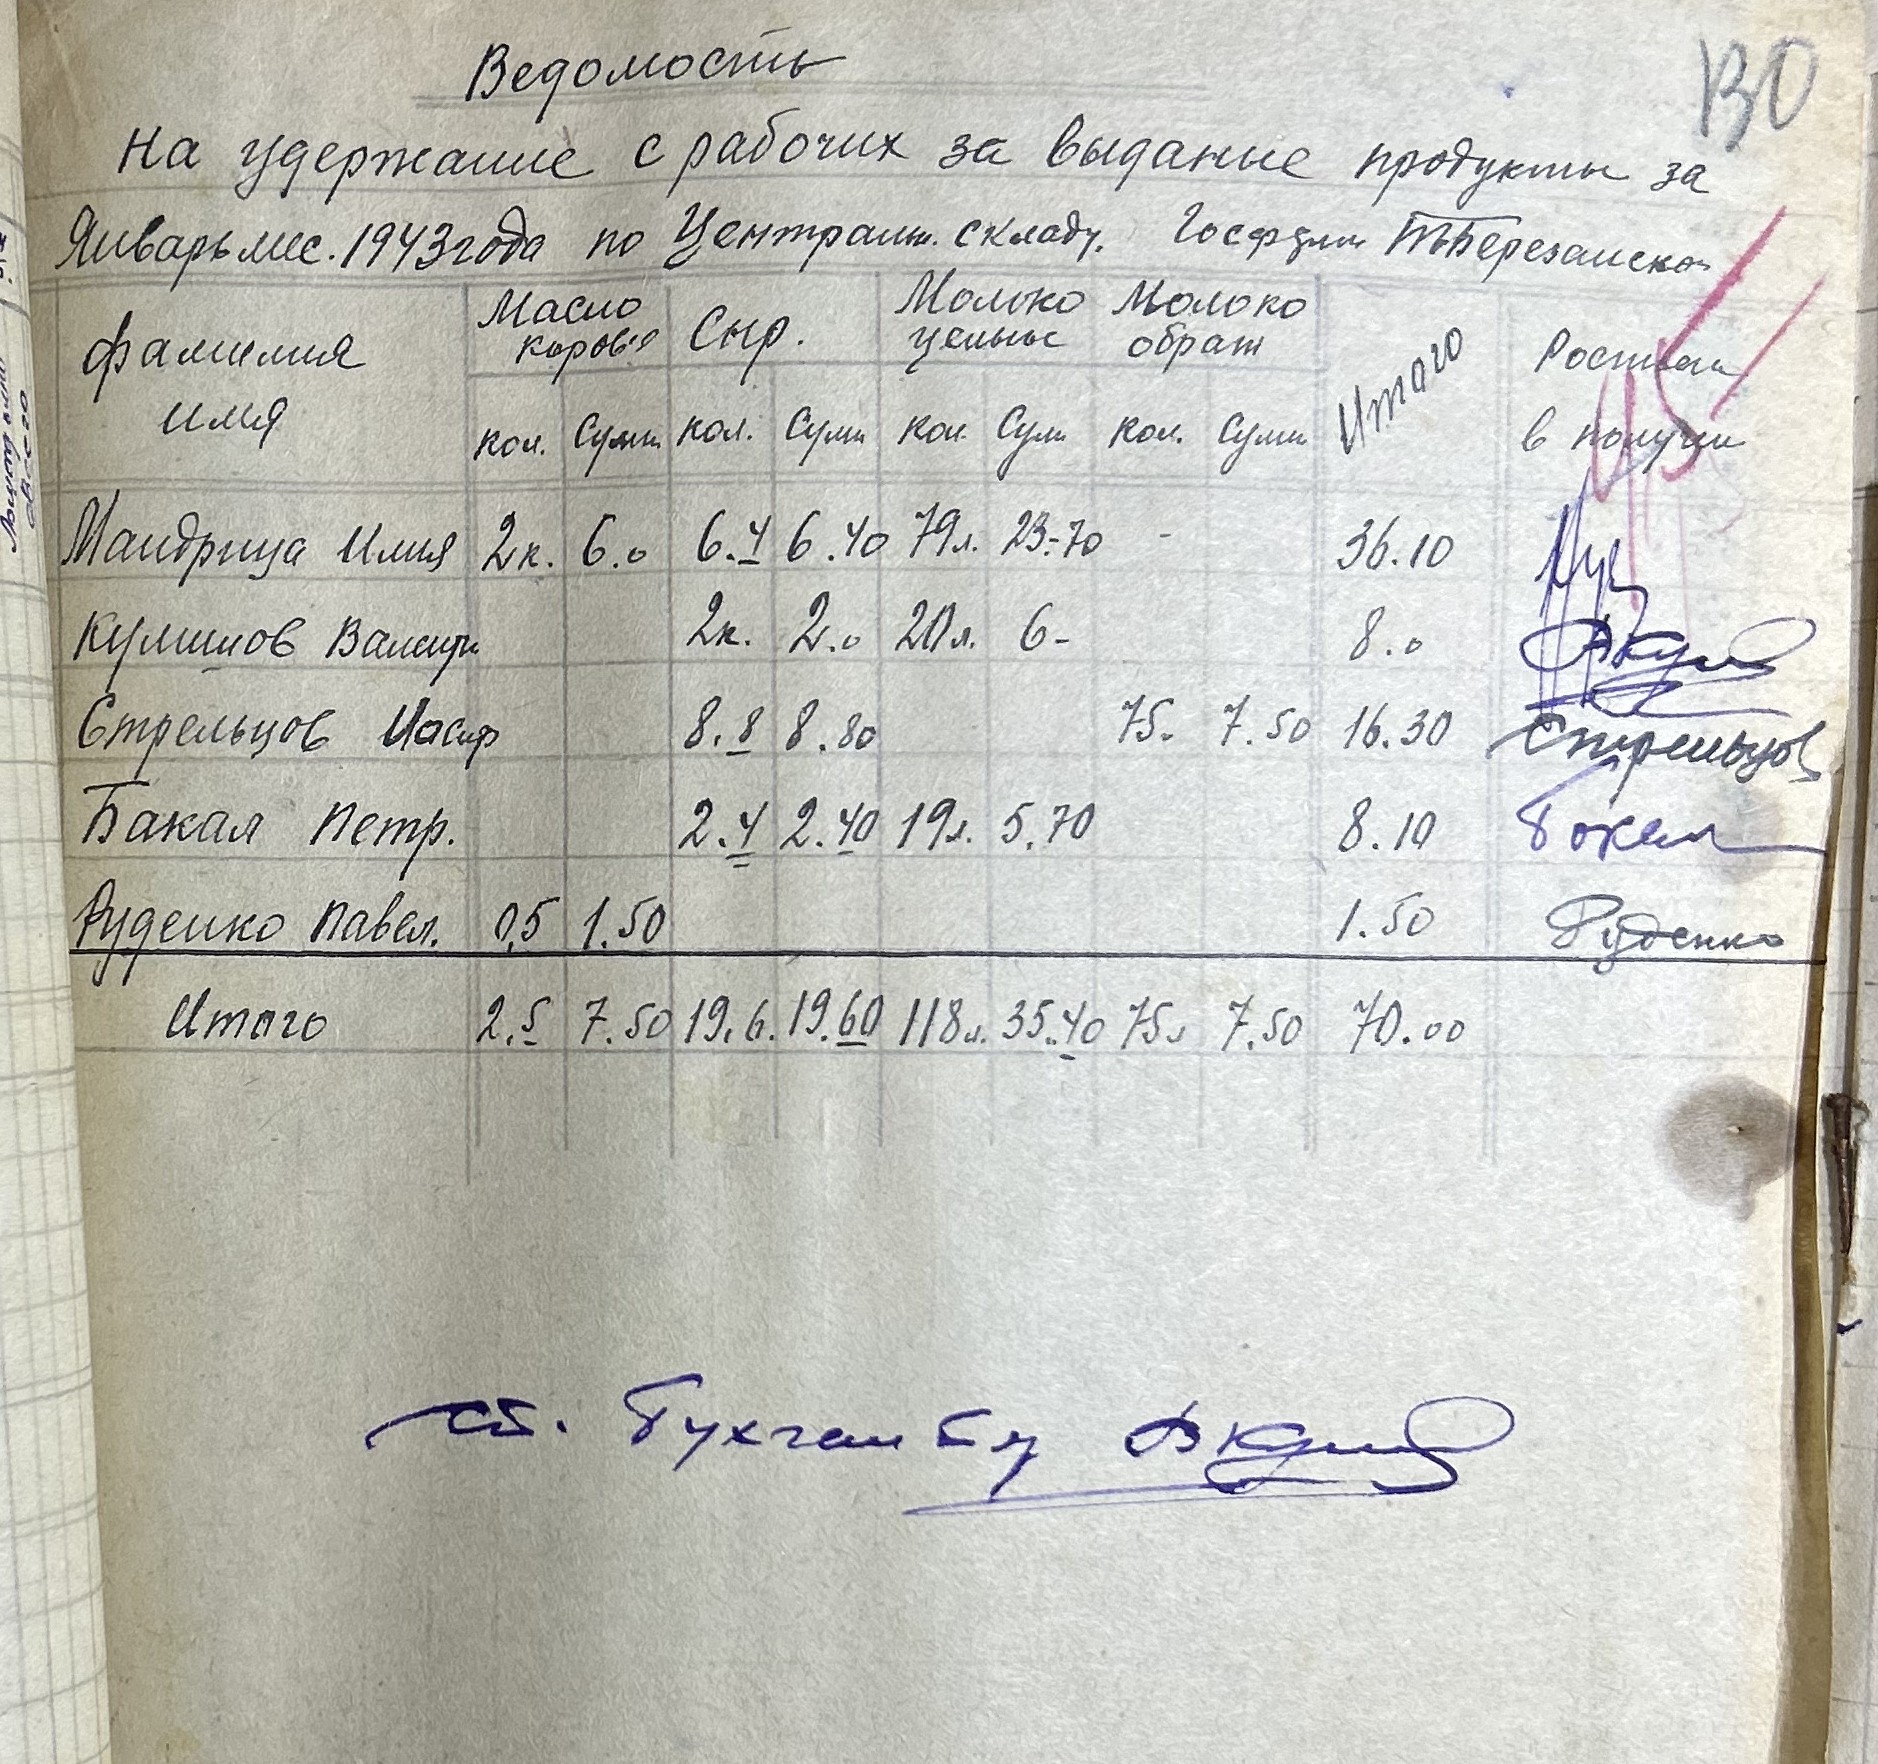 130
Ведомость
На удержание с рабочих за выданые продукты за
Январь мес. 1943 года по Центральн. складу. Госферми
Фамилия имя Масло коров'е Сыр. Молоко цельное Молоко обрат Итого
в получи
кол. Сумм кол. Сумм кол. Сумм кол. Сумм
Мандрица Илия 2к. 6.0 6.4 6.40 79л. 23.-70 - 36.10
Кулишов 2к. 2.0 20л. 6- 8.0
Стрельцов Иосиф 8.8 8.80 75. 7.50 16.30 Стрельцов
Бакал Петр. 2.4 2.40 19л. 5.70 8.10 Бокал
Руденко Павел. 0,5 1.50 1.50 Руденко
Итого 2.5 7.50 19.6. 19.60 118л. 35.40 75л 7.50 70.00
ст.